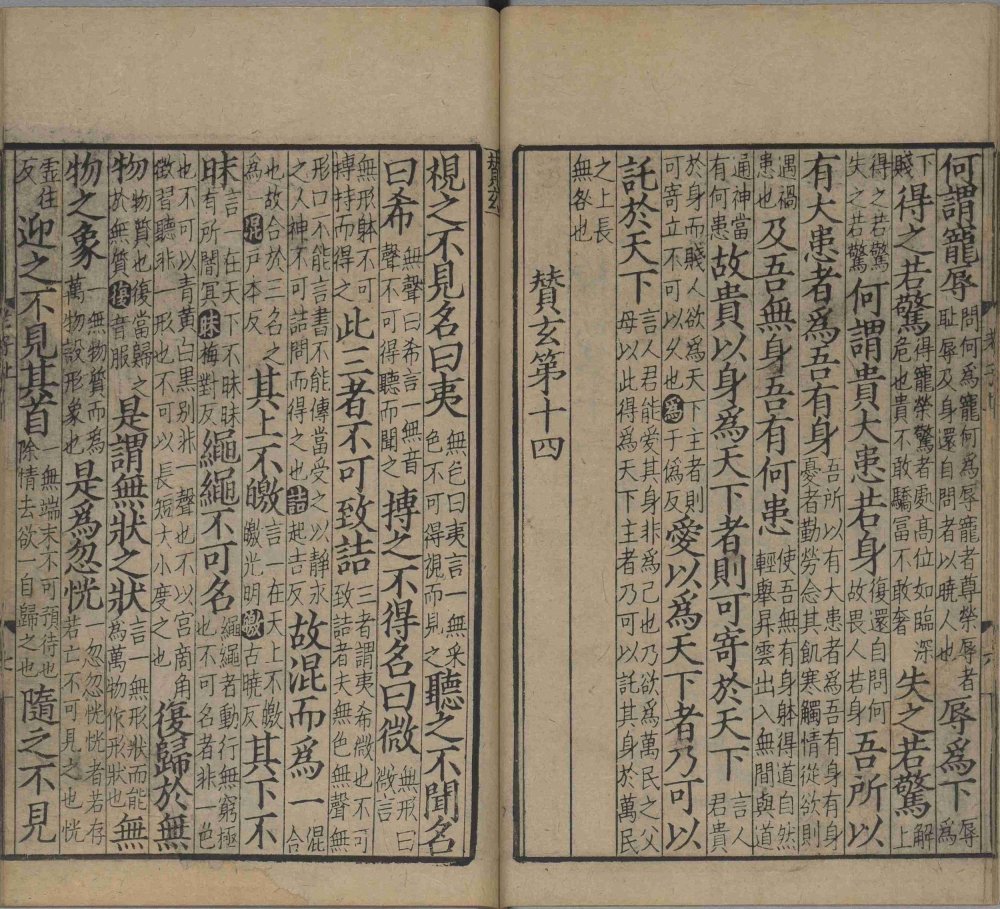 何謂寵辱問何爲寵何爲辱寵者尊榮辱者恥辱及身還自問者以曉人也辱爲下辱爲
下賤得之若驚得寵榮驚者處高位如臨深危也貴不敢驕富不敢奢失之若驚解上
得之若驚失之若驚何謂貴大患若身復還自問何故畏人若身吾所以
有大患者爲吾有身吾所以有大患者爲吾有身有身憂者勤勞念其飢寒觸情從欲則
遇禍患也及吾無身吾有何患使吾無有身躰得道自然輕舉昇雲出入無間與道
通神當有何患故貴以身爲天下者則可寄於天下言人君貴
於身而賤人欲爲天下主者則可寄立不可以乆也爲于僞反愛以爲天下者乃可以
託於天下言人君能愛其身非爲己也乃欲爲萬民之父母以此得爲天下主者乃可以託其身於萬民
之上長無咎也
賛玄第十四
賛玄
視之不見名曰夷無色曰夷言一無采色不可得視而見之聽之不聞名
曰希無聲曰希言一無音聲不可得聽而聞之摶之不得名曰微無形曰微言
無形躰不可摶持而得之此三者不可致詰三者謂夷希微也不可致詰者夫無色無聲無
形口不能言書不能傳當受之以靜求之以神不可詰問而得之也詰起吉反故混而爲一混合
也故合於三名之爲一混戸本反其上不皦言一在天上不皦皦光明皦古曉反其下不
昧言一在天下不昧昧有所闇冥昧梅對反繩繩不可名繩繩者動行無窮極也不可名者非一色
也不可以青黄白黒別非一聲也不以宮商角徵習聽非一形也不可以長短大小度之也復歸於無
物物質也復當歸之於無質復音服是謂無狀之狀言一無形狀而能爲萬物作形狀也無
物之象一無物質而爲萬物設形象也是爲忽恍一忽忽恍恍者若存若亡不可見之也恍
虗往反迎之不見其首一無端末不可預待也除情去欲一自歸之也隨之不見